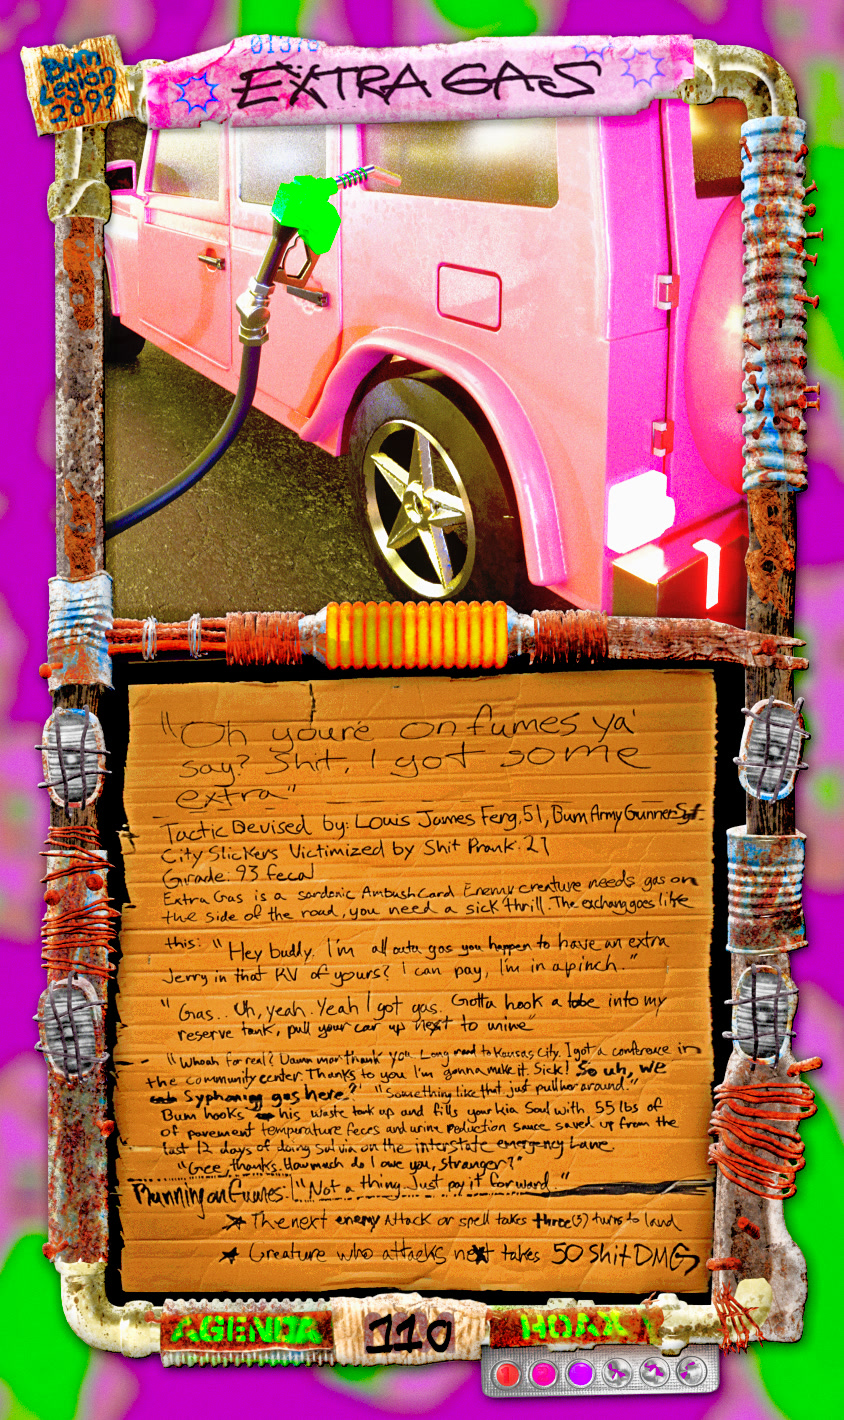 01370
Bum
Legion
2099
EXTRA GAS
1
"Oh youre on fumes ya'
say? Shit, I got some
extra"
Tactic Devised by: Louis James Feng, 51, Bum Army Gunner Sgt.
City Slickers Victimized by Shit Prank: 27
Grade: 93 fecal
Extra Gas is a sardonic Ambush Card Enemy creature needs gas on
the side of the road, you need a sick thrill. The exchang goes like
this: "Hey buddy. I'm all outa gas you happen to have an extra
Jerry in that RV of yours? I can pay, I'm in a pinch."
"Gas.. Uh, yeah. Yeah I got gas. Gotta hook a tube into my
reserve tank, pull your car up next to mine"
"Whoah for real? Damn man thank you. Long road to Kansas City. I got a conference in
the community center. Thanks to you I'm gonna make it. Sick! So uh, we
Syphoning gas here?" "Something like that just pull her around."
Bum hooks his waste tank up and fills your kia Soul with 55 lbs of
of pavement temperature feces and urine reduction sauce saved up from the
last 12 days of doing Salvia on the interstate emergency Lane.
"Gee, thanks. How much do I owe you, stranger?"
Running on Fumes: "Not a thing. Just pay it forward."
The next enemy Attack or spell takes three (3) turns to land
Creature who attacks next takes 50 Shit DMG
AGENDA
110
HOAX